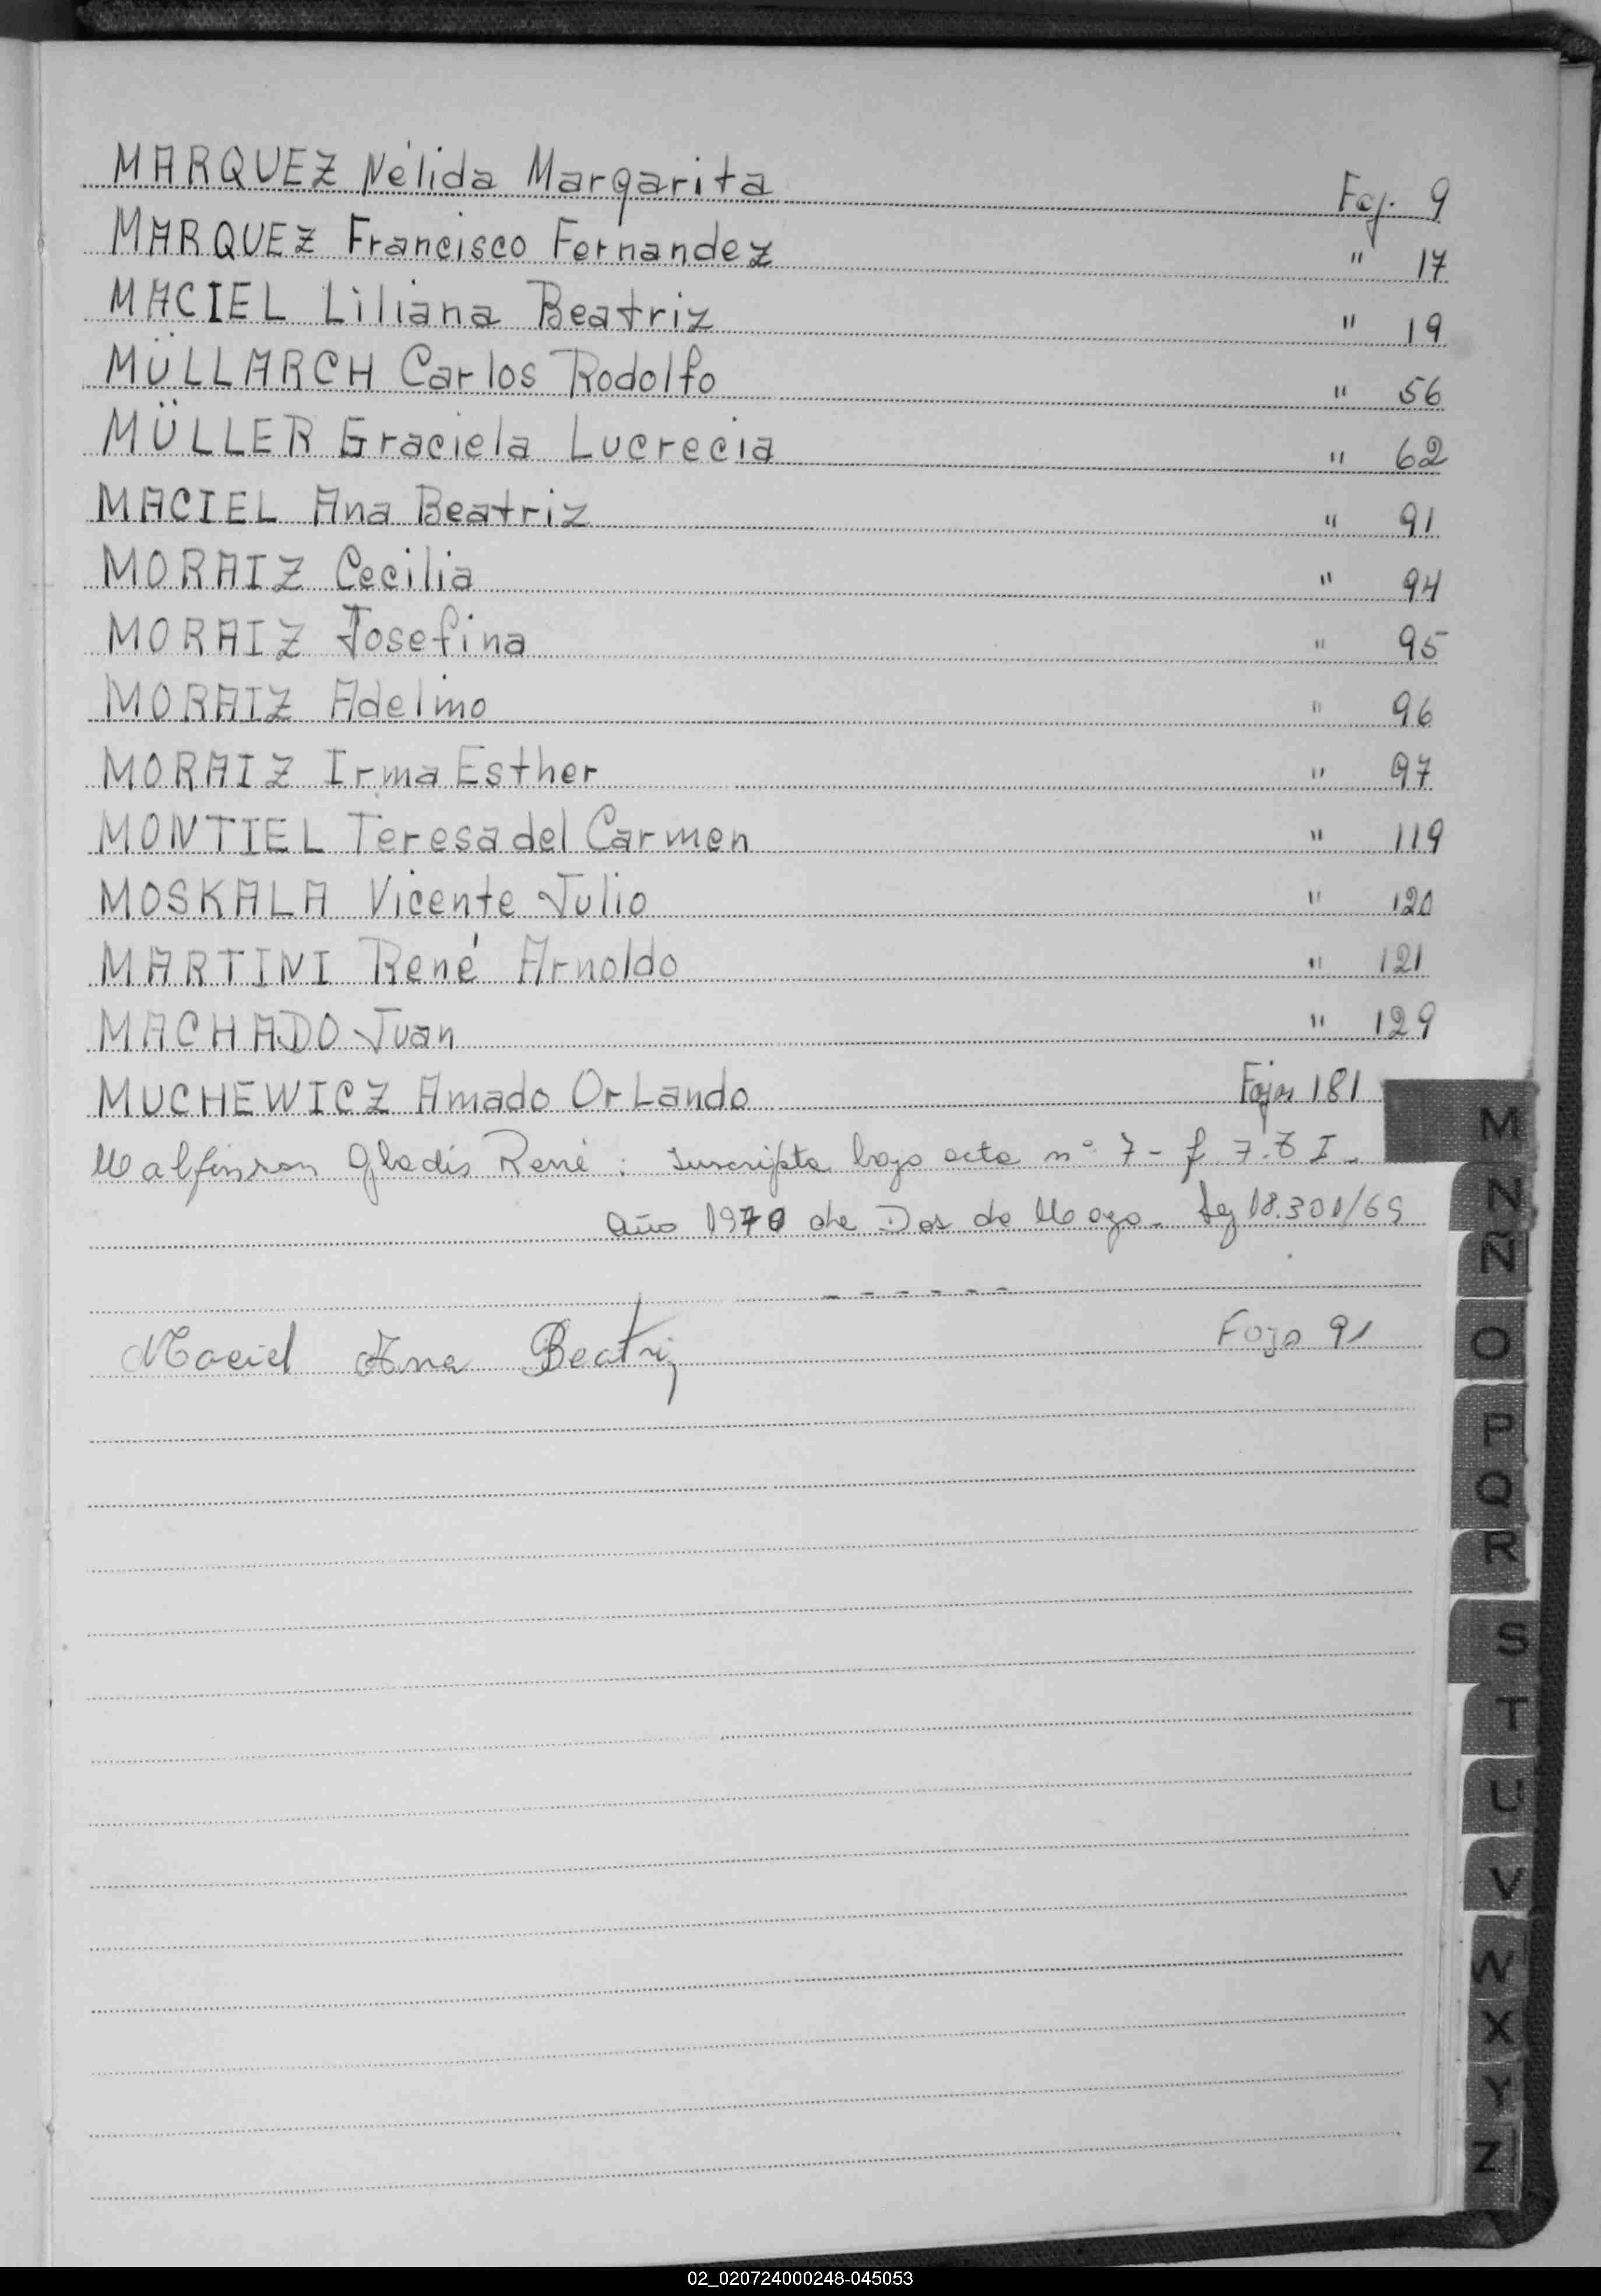 MARQUEZ Nélida Margarita Foj. 9
MARQUEZ Francisco Fernandez " 17
MACIEL Liliana Beatriz " 19
MÜLLARCH Carlos Rodolfo " 56
MÜLLER Graciela Lucrecia " 62
MACIEL Ana Beatriz " 91
MORAIZ Cecilia " 94
MORAIZ Josefina " 95
MORAIZ Adelmo " 96
MORAIZ Irma Esther " 97
MONTIEL Teresa del Carmen " 119
MOSKALA Vicente Julio " 120
MARTINI René Arnoldo " 121
MACHADO Juan " 129
MUCHEWICZ Amado OrLando Fojas 181
Gladis René: Inscripta bajo acta nº 7 - f 7. T I.
Año 1970 de Dos de Mayo.
Maciel Ana Beatriz Foja 91
M
N
Ñ
O
P
Q
R
S
T
U
V
W
X
Y
Z
02_020724000248-045053